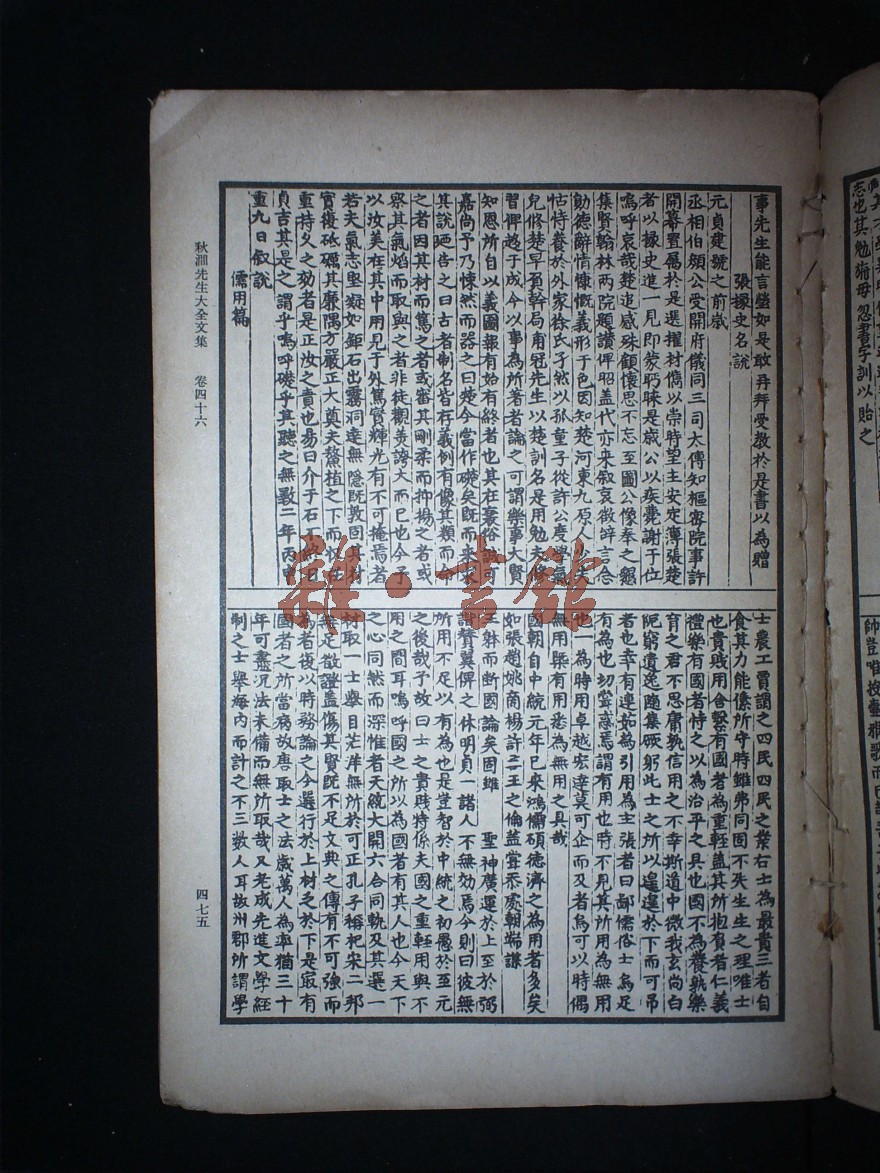 事先生能言瑩如是敢再拜受教於是書以為贈
張掾史名說
元貞建號之前歲
丞相伯顏公受開府儀同三司太傅知樞密院事許
開幕置屬於是選擢材儁以崇時望主安定簿張楚
者以掾史進一見即蒙眄睞是歲公以疾薨謝于位
嗚呼哀哉楚追感殊顧懷思不忘至圖公像奉之懇
集賢翰林兩院題讚俾昭盖代亦來叙哀徵辭言念
勳德辭情慷慨義形于色因知楚河東九原人少失
怙恃養於外家徐氏孑然以孤童子從許公度學氣
兒修楚早負幹局甫冠先生以楚訓名是用勉夫修
習俾越于成今以事為所著者論之可謂樂事大賢
知恩所自以義圖報有始有終者也其在褱俗誠可
嘉尚予乃悚然而器之曰楚今當作礎矣既而來求
其說迺告之曰古者制名皆有義例有像其類而命
之者因其材而篤之者或審其剛柔而抑揚之者或
察其氣焰而取與之者非徒觀美誇大而已也今予
以汝美在其中用見于外篤實輝光有不可掩焉者
若夫氣志堅凝如鉅石出霧洞達無隱既敦固其材
實復砥礪其廉隅方嚴正大奠夫驁植之下而以任
重持久之効者是正汝之貴也易曰介于石不終日
貞吉其是之謂乎嗚呼礎乎其聽之無斁二年丙申
重九日叙說
儒用篇
士農工賈謂之四民四民之業右士為最貴三者自
食其力能傃所守時雖弗同固不失生生之理唯士
也貴賤用舍繫有國者為重輕盖其所抱負者仁義
禮樂有國者恃之以為治平之具也國不為養孰樂
育之君不思庸孰信用之不幸斯道中微我玄尚白
阨窮遺逸隨集厥躬此士之所以遑遑於下而可吊
者也幸有連茹為引用為主張者曰鄙儒俗士烏足
有為也切甞惑焉謂有用也時不見其所用為無用
也一為時用卓越宏達莫可企而及者烏可以時偶
無用槩有用悉為無用之具哉
國朝自中統元年已來鴻儒碩德濟之為用者多矣
如張趙姚商楊許三王之倫盖甞忝處朝端謙
三躰而断國論矣固雖　聖神廣運於上至於弼
諧贊翼俾之休明貞一諸人不無効焉今則曰彼無
所用不足以有為也是豈智於中統之初愚於至元
之後哉予故曰士之貴賤特係夫國之重輕用與不
用之間耳嗚呼國之所以為國者有其人也今天下
之心同然而深惟者天統大開六合同軌及其選一
材取一士舉目茫洋無所於可正孔子稱杞宋二邦
無足徵證盖傷其賢既不足文典之傳有不可強而
為者復以時務論之今選行於上材乏於下是寂有
國者之所當病故唐取士之法歲萬人為率猶三十
年可盡況法未備而無所取哉又老成先進文學經
制之士舉海內而計之不三數人耳故州郡所謂學
秋澗先生大全文集　卷四十六
四七五
志也其勉旃毋忽晝字訓以貽之
雜·書館